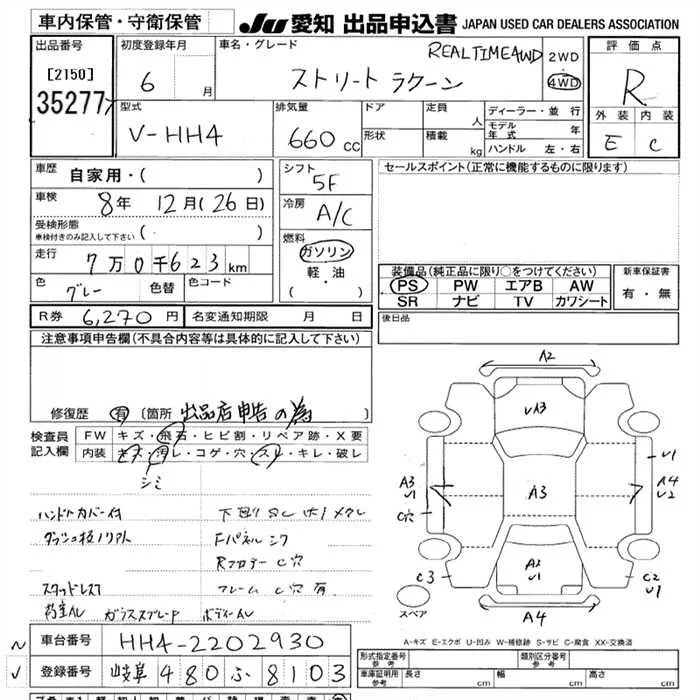 車内保管・守衛保管
JU 愛知 出品申込書 JAPAN USED CAR DEALERS ASSOCIATION
出品番号
[2150]
35277
初度登録年月
6 月
車名・グレード
REALTIME4WD
ストリート ラクーン
2WD
4WD
評価点
R
外装 内装
E C
型式
V-HH4
排気量
660 cc
ドア
形状
定員 人
積載 kg
ディーラー・並行
モデル年式 年
ハンドル 左・右
車歴
自家用・( )
車検
8年 12月(26日)
受検形態
車検付きのみ記入して下さい ( )
走行
7万0千623km
色 グレー
色替
色コード
シフト
5F
冷房
A/C
燃料
ガソリン
軽・油
( ・ )
セールスポイント(正常に機能するものに限ります)
装備品(純正品に限り○をつけてください)
PS PW エアB AW
SR ナビ TV カワシート
新車保証書
有・無
R券 6,270円
名変通知期限 月 日
後日品
注意事項申告欄(不具合内容等は具体的に記入して下さい)
修復歴 有 [箇所 出品店申告の為 ]
検査員記入欄
FW キズ・飛石・ヒビ割・リペア跡・X要
内装 キズ・汚レ・コゲ・穴・スレ・キレ・破レ
シミ
ハンドルカバー付
Fパネル
C穴
スタッドレス
フレーム C穴 有
A2
UA3
A3
A3
U1
C穴
U1
A4
U2
A2
U1
C3
C2
U1
A4
スペア
A-キズ E-エクボ U-凹み W-補修跡 S-サビ C-腐食 XX-交換済
車台番号 HH4-2202930
登録番号 岐阜480ふ8103
形式指定番号
参考
類別区分番号
参考
車庫証明用
参考
長さ cm
幅 cm
高さ cm